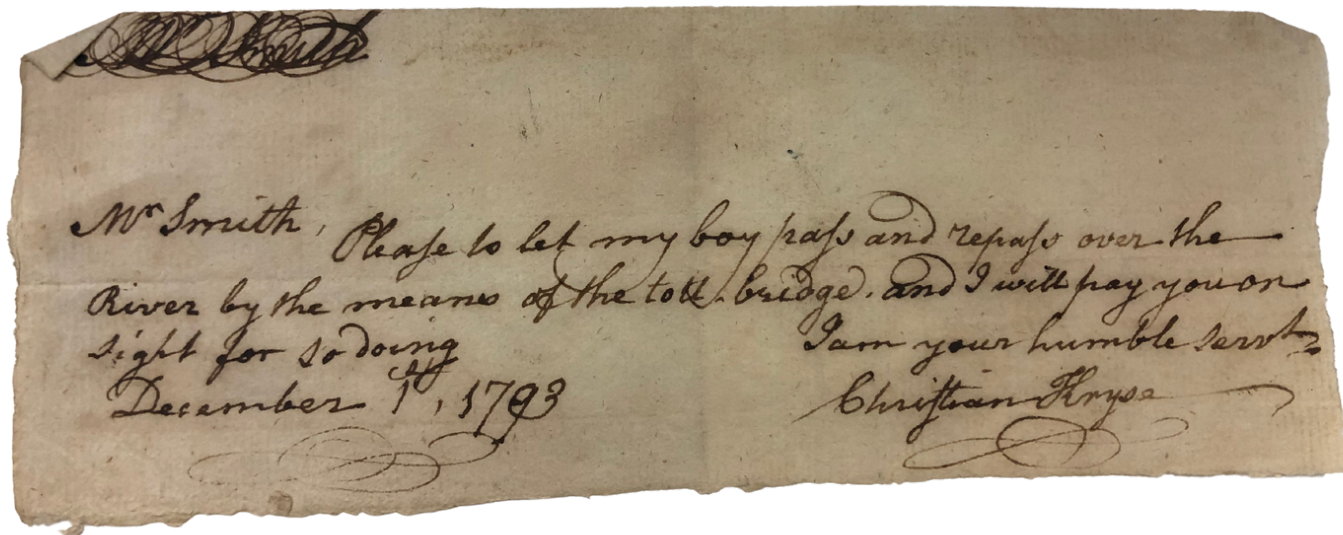 Mr Smith
Mr Smith, Please to let my boy pass and repass over the
River by the means of the toll-bridge. and I will pay you on
sight for so doing I am your humble servt
December 1st, 1793 Christian Kryse